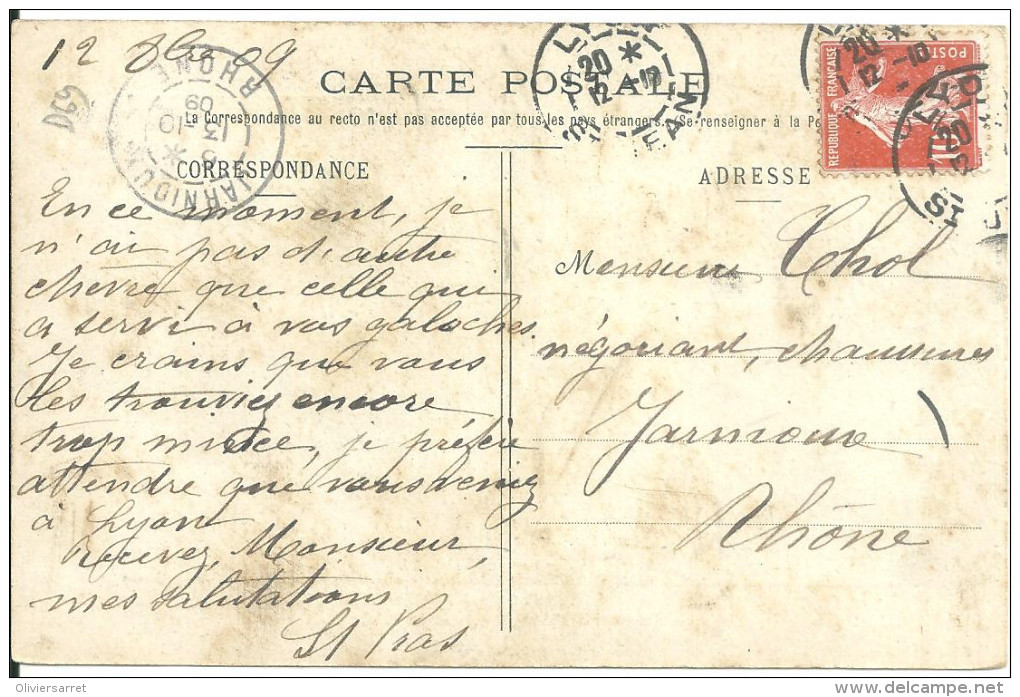 12 8bre 09
CARTE POSTALE
La Correspondance au recto n'est pas acceptée par tous les pays étrangers. (Se renseigner à la Po
CORRESPONDANCE
ADRESSE
En ce moment, je
n'ai pas d'autre
chevre que celle qui
a servi à vos galoches.
Je crains que vous
les trouviez encore
trop mince, je préfère
attendre que vous veniez
à Lyon
Recevez, Monsieur,
mes salutations
St Pras
Monsieur Chol
négociant, chaussures
Jarnioux
Rhône
JARNIOUX
RHONE
13-10
09
LYON
20
12-10
REPUBLIQUE FRANÇAISE
POSTES
10
690
Oliviersarret
www.delcampe.net